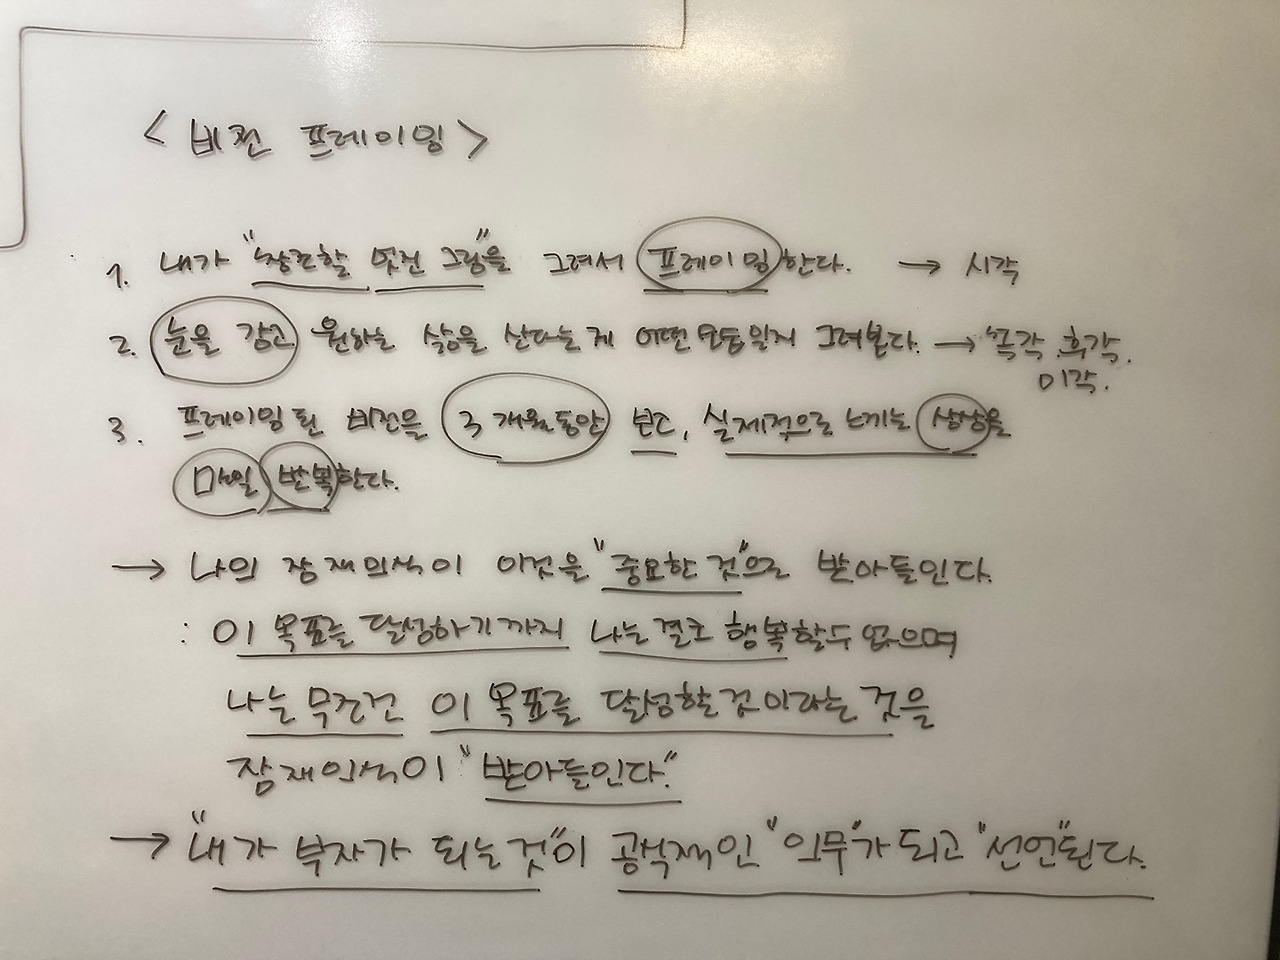 < 비전 프레이밍 >
1. 내가 "창조할 멋진 그림"을 그려서 프레이밍한다. → 시각
2. 눈을 감고 원하는 삶을 산다는게 어떤모습일지 그려본다. → 후각.
미각.
3. 프레이밍 된 비전을 3개월동안 보고, 실제적으로 느끼는 상상을
매일 반복한다.
→ 나의 잠재의식이 이것을 "중요한 것"으로 받아들인다.
: 이 목표를 달성하기까지 나는 결코 행복할수 없으며
나는 무조건 이 목표를 달성할것이라는 것을
잠재의식이 "받아들인다."
→ "내가 부자가 되는 것"이 공식적인 "의무"가 되고 "선언"된다.